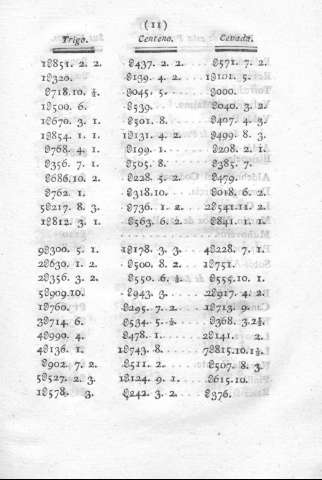 (11)
Trigo. Centeno. Cevada.
1$851. 2. 2. $437. 2. 2. $571. 7. 2.
1$320. $139. 4. 2. 1$101. 5.
$718.10. ½. $045. 5. $000.
1$500. 6. $539. $040. 3. 2.
1$670. 3. 1. $501. 8. $407. 4. 3.
1$854. 1. 1. 1$131. 4. 2. $499. 8. 3.
$768. 4. 1. $199. 1. $208. 2. 1.
$356. 7. 1. $505. 8. $385. 7.
$686.10. 2. $228. 5. 2. $479.
$762. 1. $318.10. $018. 6. 2.
5$217. 8. 3. $736. 1. 2. 2$541.11. 2.
1$812. 3. 1. $563. 6. 2. $841. 1. 1.
9$300. 5. 1. 1$178. 3. 3. 4$228. 7. 1.
2$630. 1. 2. $500. 8. 2. 1$751.
2$356. 3. 2. $550. 6. ½. $555.10. 1.
5$909.10. $943. 3. 2$917. 4. 2.
1$760. $295. 7. 2. 1$713. 9.
3$714. 6. $534. 5. ½. $368. 3.2½.
4$990. 4. $478. 1. 2$141. 2.
4$136. 1. 1$743. 8. 7$815.10.1½.
$902. 7. 2. $511. 2. $507. 8. 3.
5$527. 2. 3. 1$124. 9. 1. $615.10.
1$578. 3. $242. 3. 2. $376.